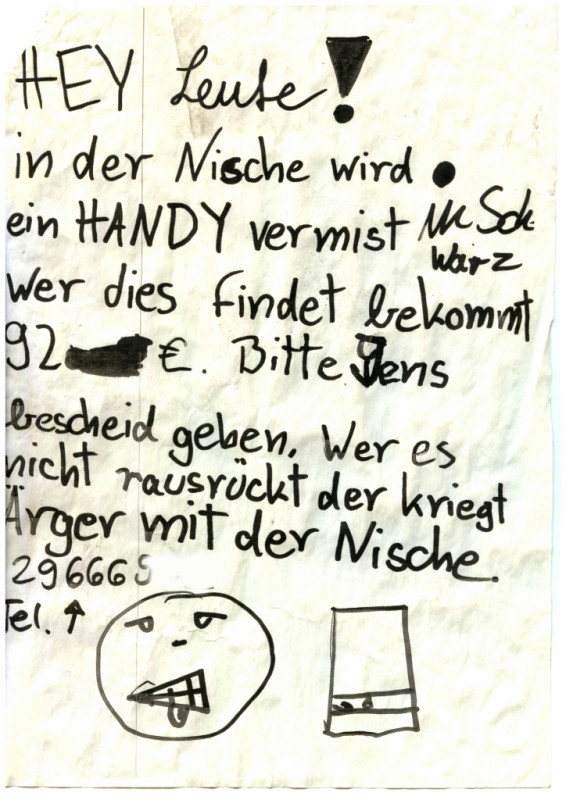 HEY Leute!
in der Nische wird
ein HANDY vermist
Warz
wer dies findet bekommt
92 €. Bitte Jens
bescheid geben. Wer es
nicht rausrückt der kriegt
Ärger mit der Nische.
296665
Tel. ↑